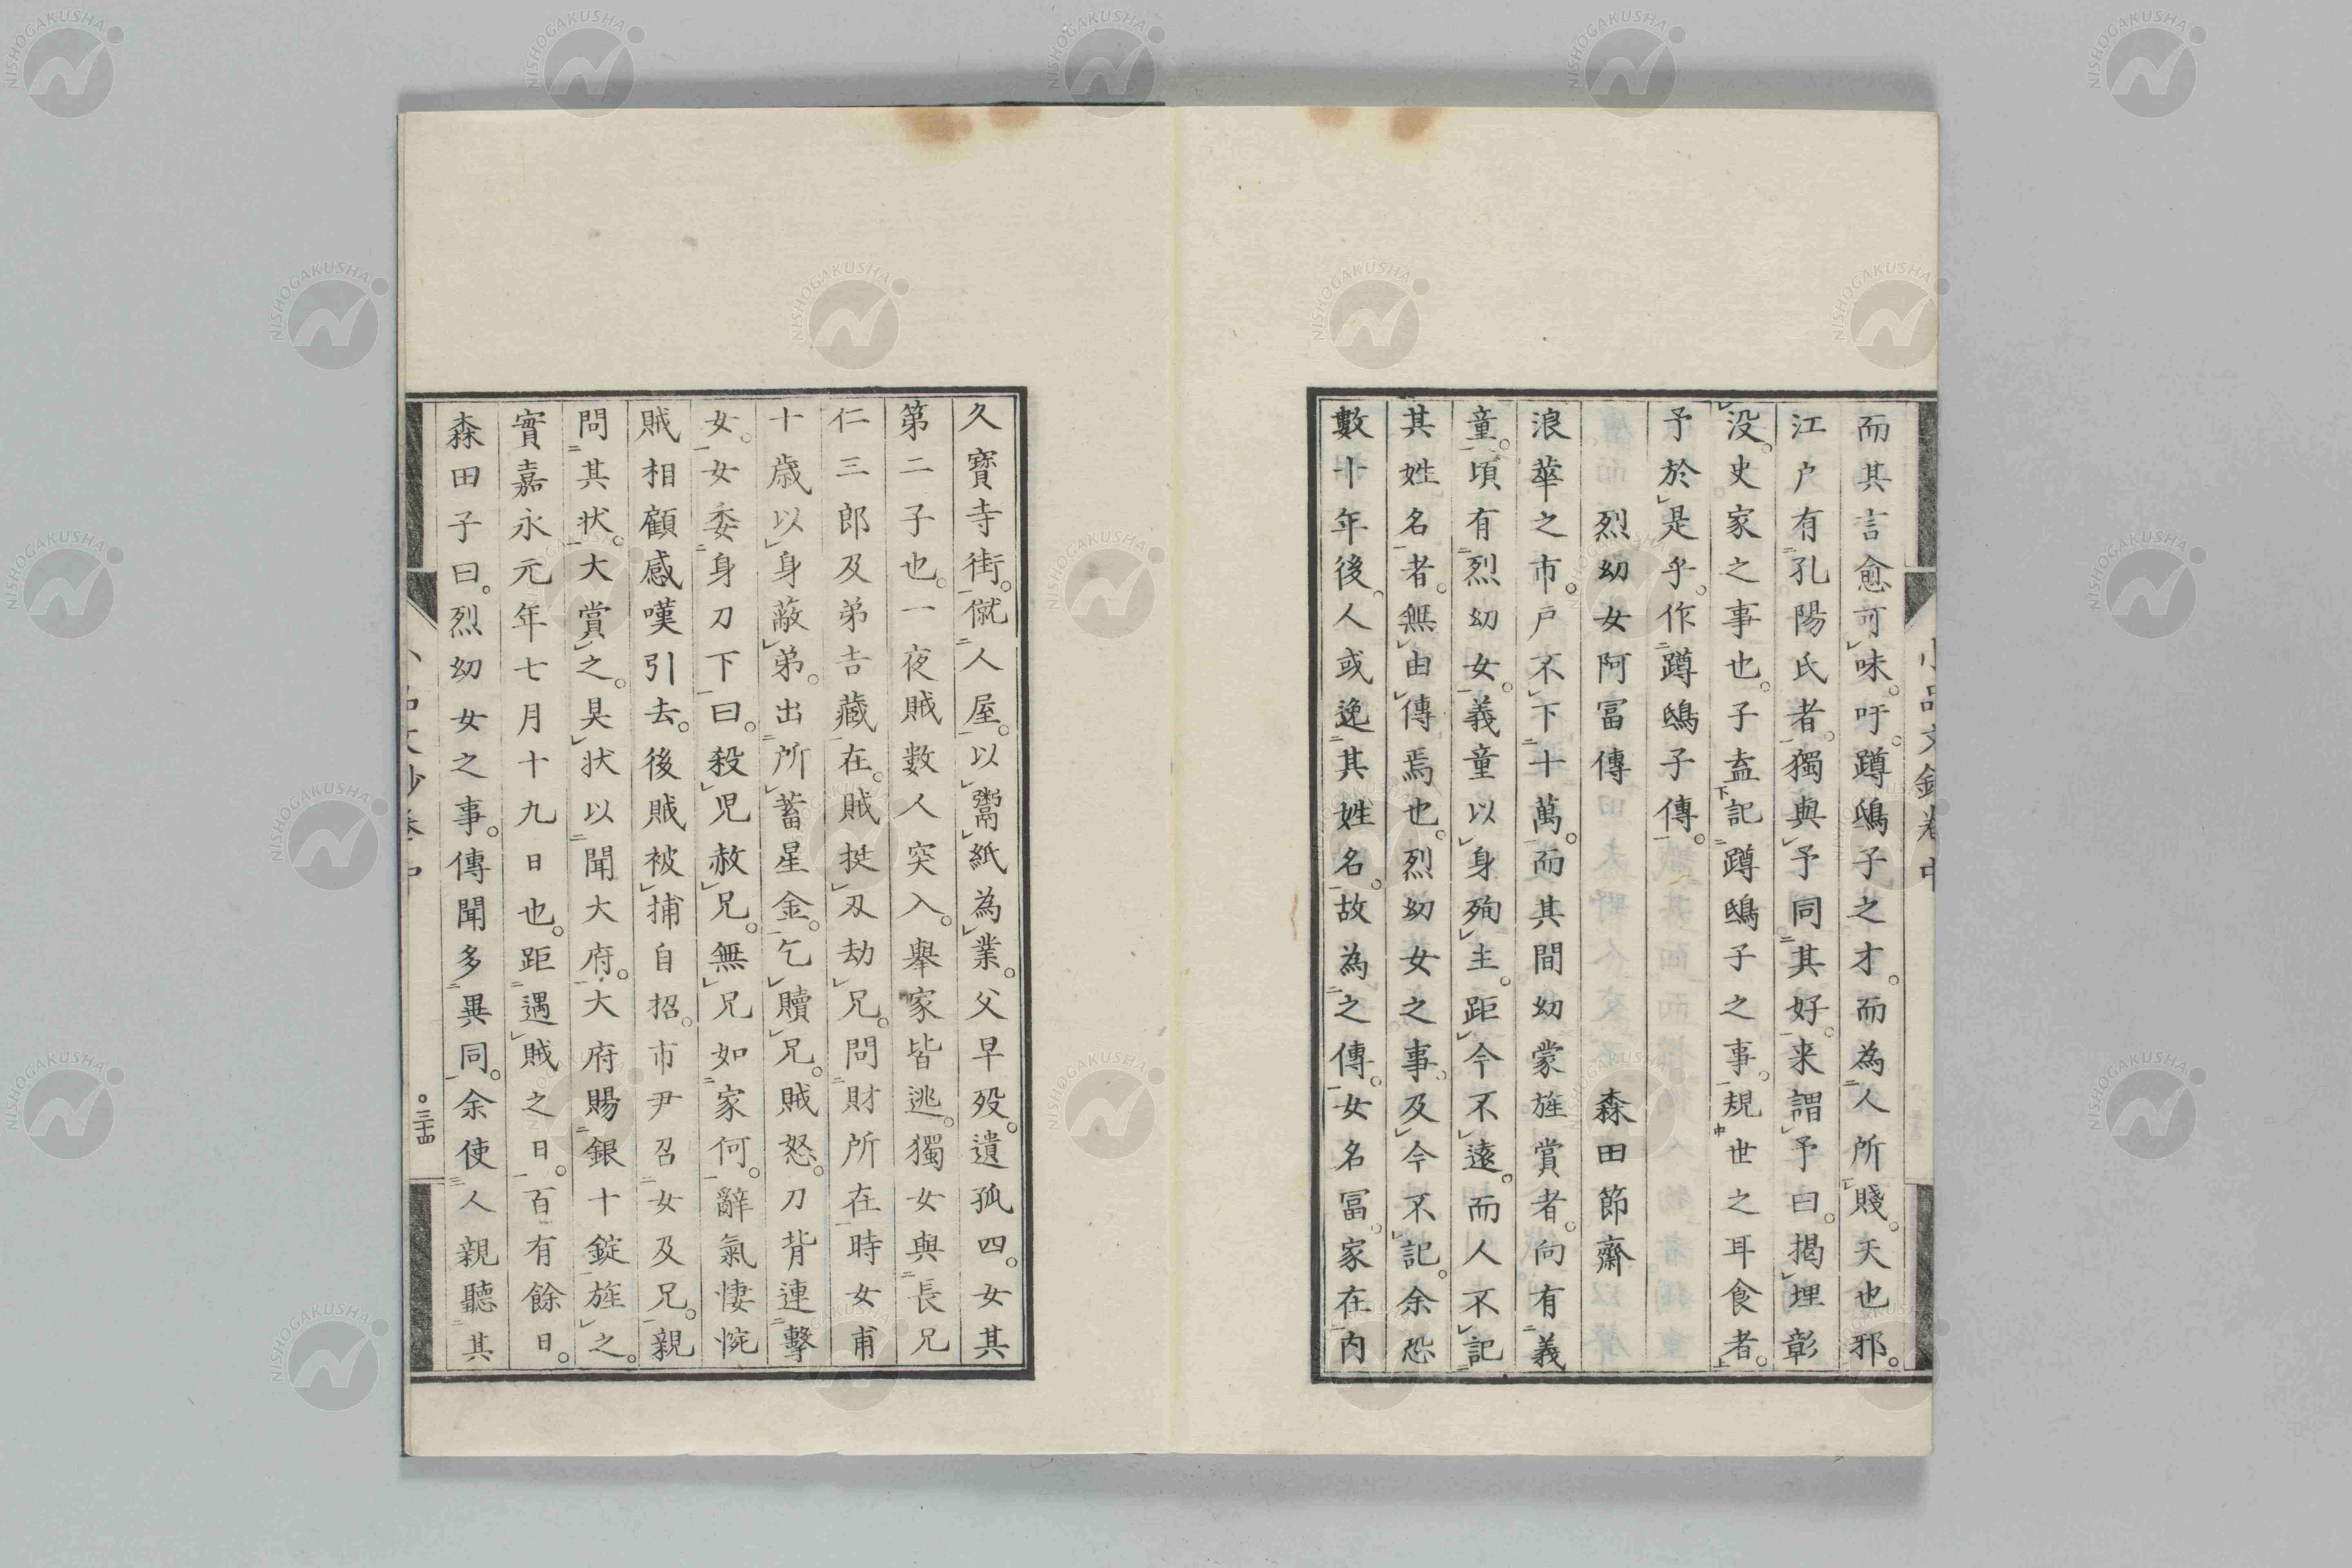 而其言愈可味。吁。蹲鴟子之才。而為人所賤。夭也邪。
江戸有孔陽氏者。獨與予同其好。来謂予曰。揭埋彰
没。史家之事也。子盍記蹲鴟子之事。規世之耳食者。
予於是乎。作蹲鴟子傳。
烈幼女阿冨傳 森田節齋
浪華之市。戸不下十萬。而其間幼蒙旌賞者。向有義
童。頃有烈幼女。義童以身殉主。距今不遠。而人不記
其姓名者。無由傳焉也。烈幼女之事。及今不記。余恐
數十年後。人或逸其姓名。故為之傳。女名冨。家在内
久寶寺街。僦人屋。以鬻紙為業。父早歿。遺孤四。女其
第二子也。一夜賊數人突入。舉家皆逃。獨女與長兄
仁三郎及弟吉藏在。賊挺刃劫兄。問財所在。時女甫
十歳。以身蔽弟。出所蓄星金。乞贖兄。賊怒。刀背連擊
女。女委身刀下曰。殺児赦兄。無兄如家何。辭氣悽惋
賊相顧感嘆引去。後賊被捕自招。市尹召女及兄。親
問其状。大賞之。具状以聞大府。大府賜銀十錠旌之。
實嘉永元年七月十九日也。距遇賊之日。百有餘日。
森田子曰。烈幼女之事。傳聞多異同。余使人親聽其
三十四
NISHOGAKUSHA